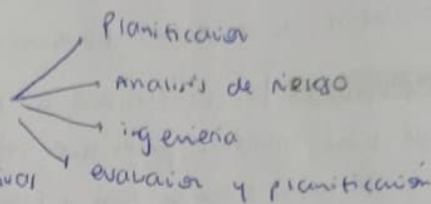 Planificacion
Analisis de riesgo
ingenieria
evaluacion y planificación